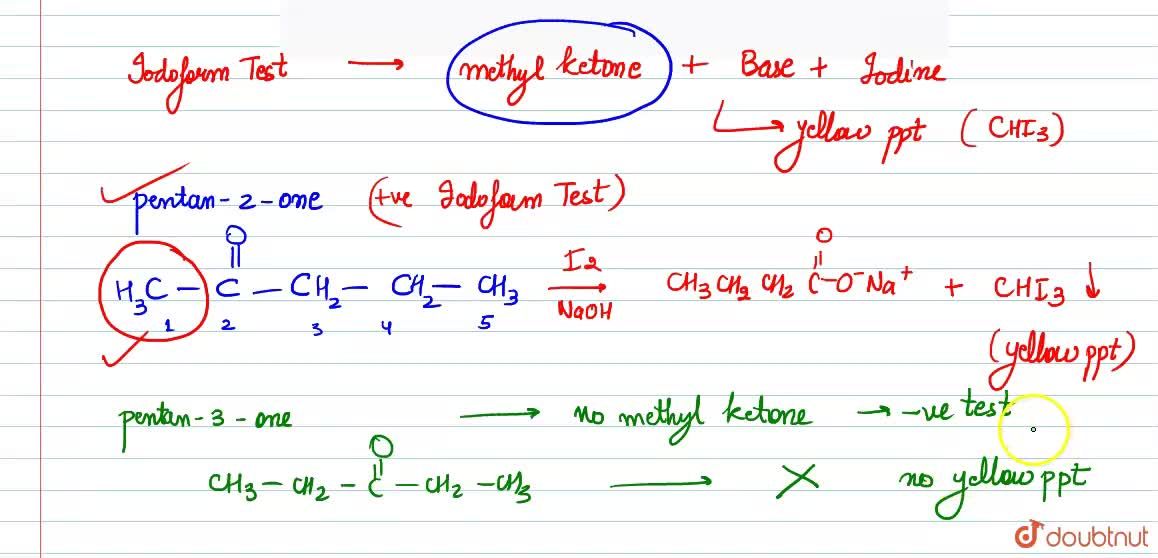 Iodoform Test → methyl ketone + Base + Iodine
→ yellow ppt (CHI3)
pentan-2-one (+ve Iodoform Test)
O
H3C – C – CH2 – CH2 – CH3 I2 NaOH → CH3CH2CH2 C(=O)–O⁻Na⁺ + CHI3 ↓
1 2 3 4 5
(yellow ppt)
pentan-3-one → no methyl ketone → -ve test
O
CH3 – CH2 – C – CH2 – CH3 → X no yellow ppt
doubtnut